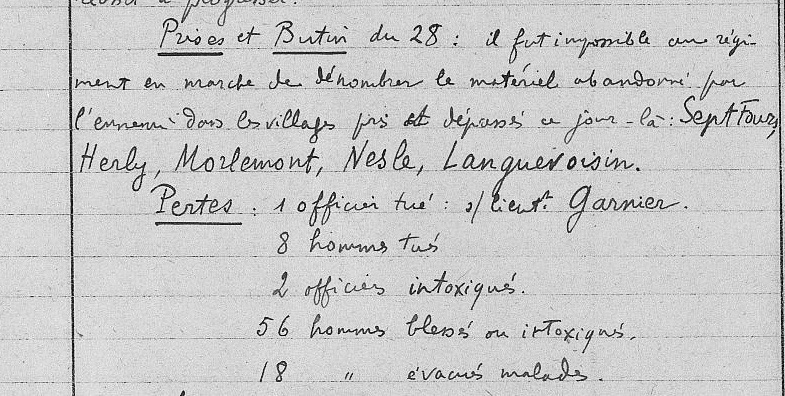 Prises et Butin du 28 : il fut impossible au régi-
ment en marche de dénombrer le matériel abandonné par
l'ennemi dans les villages pris et dépassés ce jour-là : Sept Fours,
Herly, Morlemont, Nesle, Languevoisin.
Pertes : 1 officier tué : s/lieut.t Garnier.
8 hommes tués
2 officiers intoxiqués.
56 hommes blessés ou intoxiqués.
18 " évacués malades.